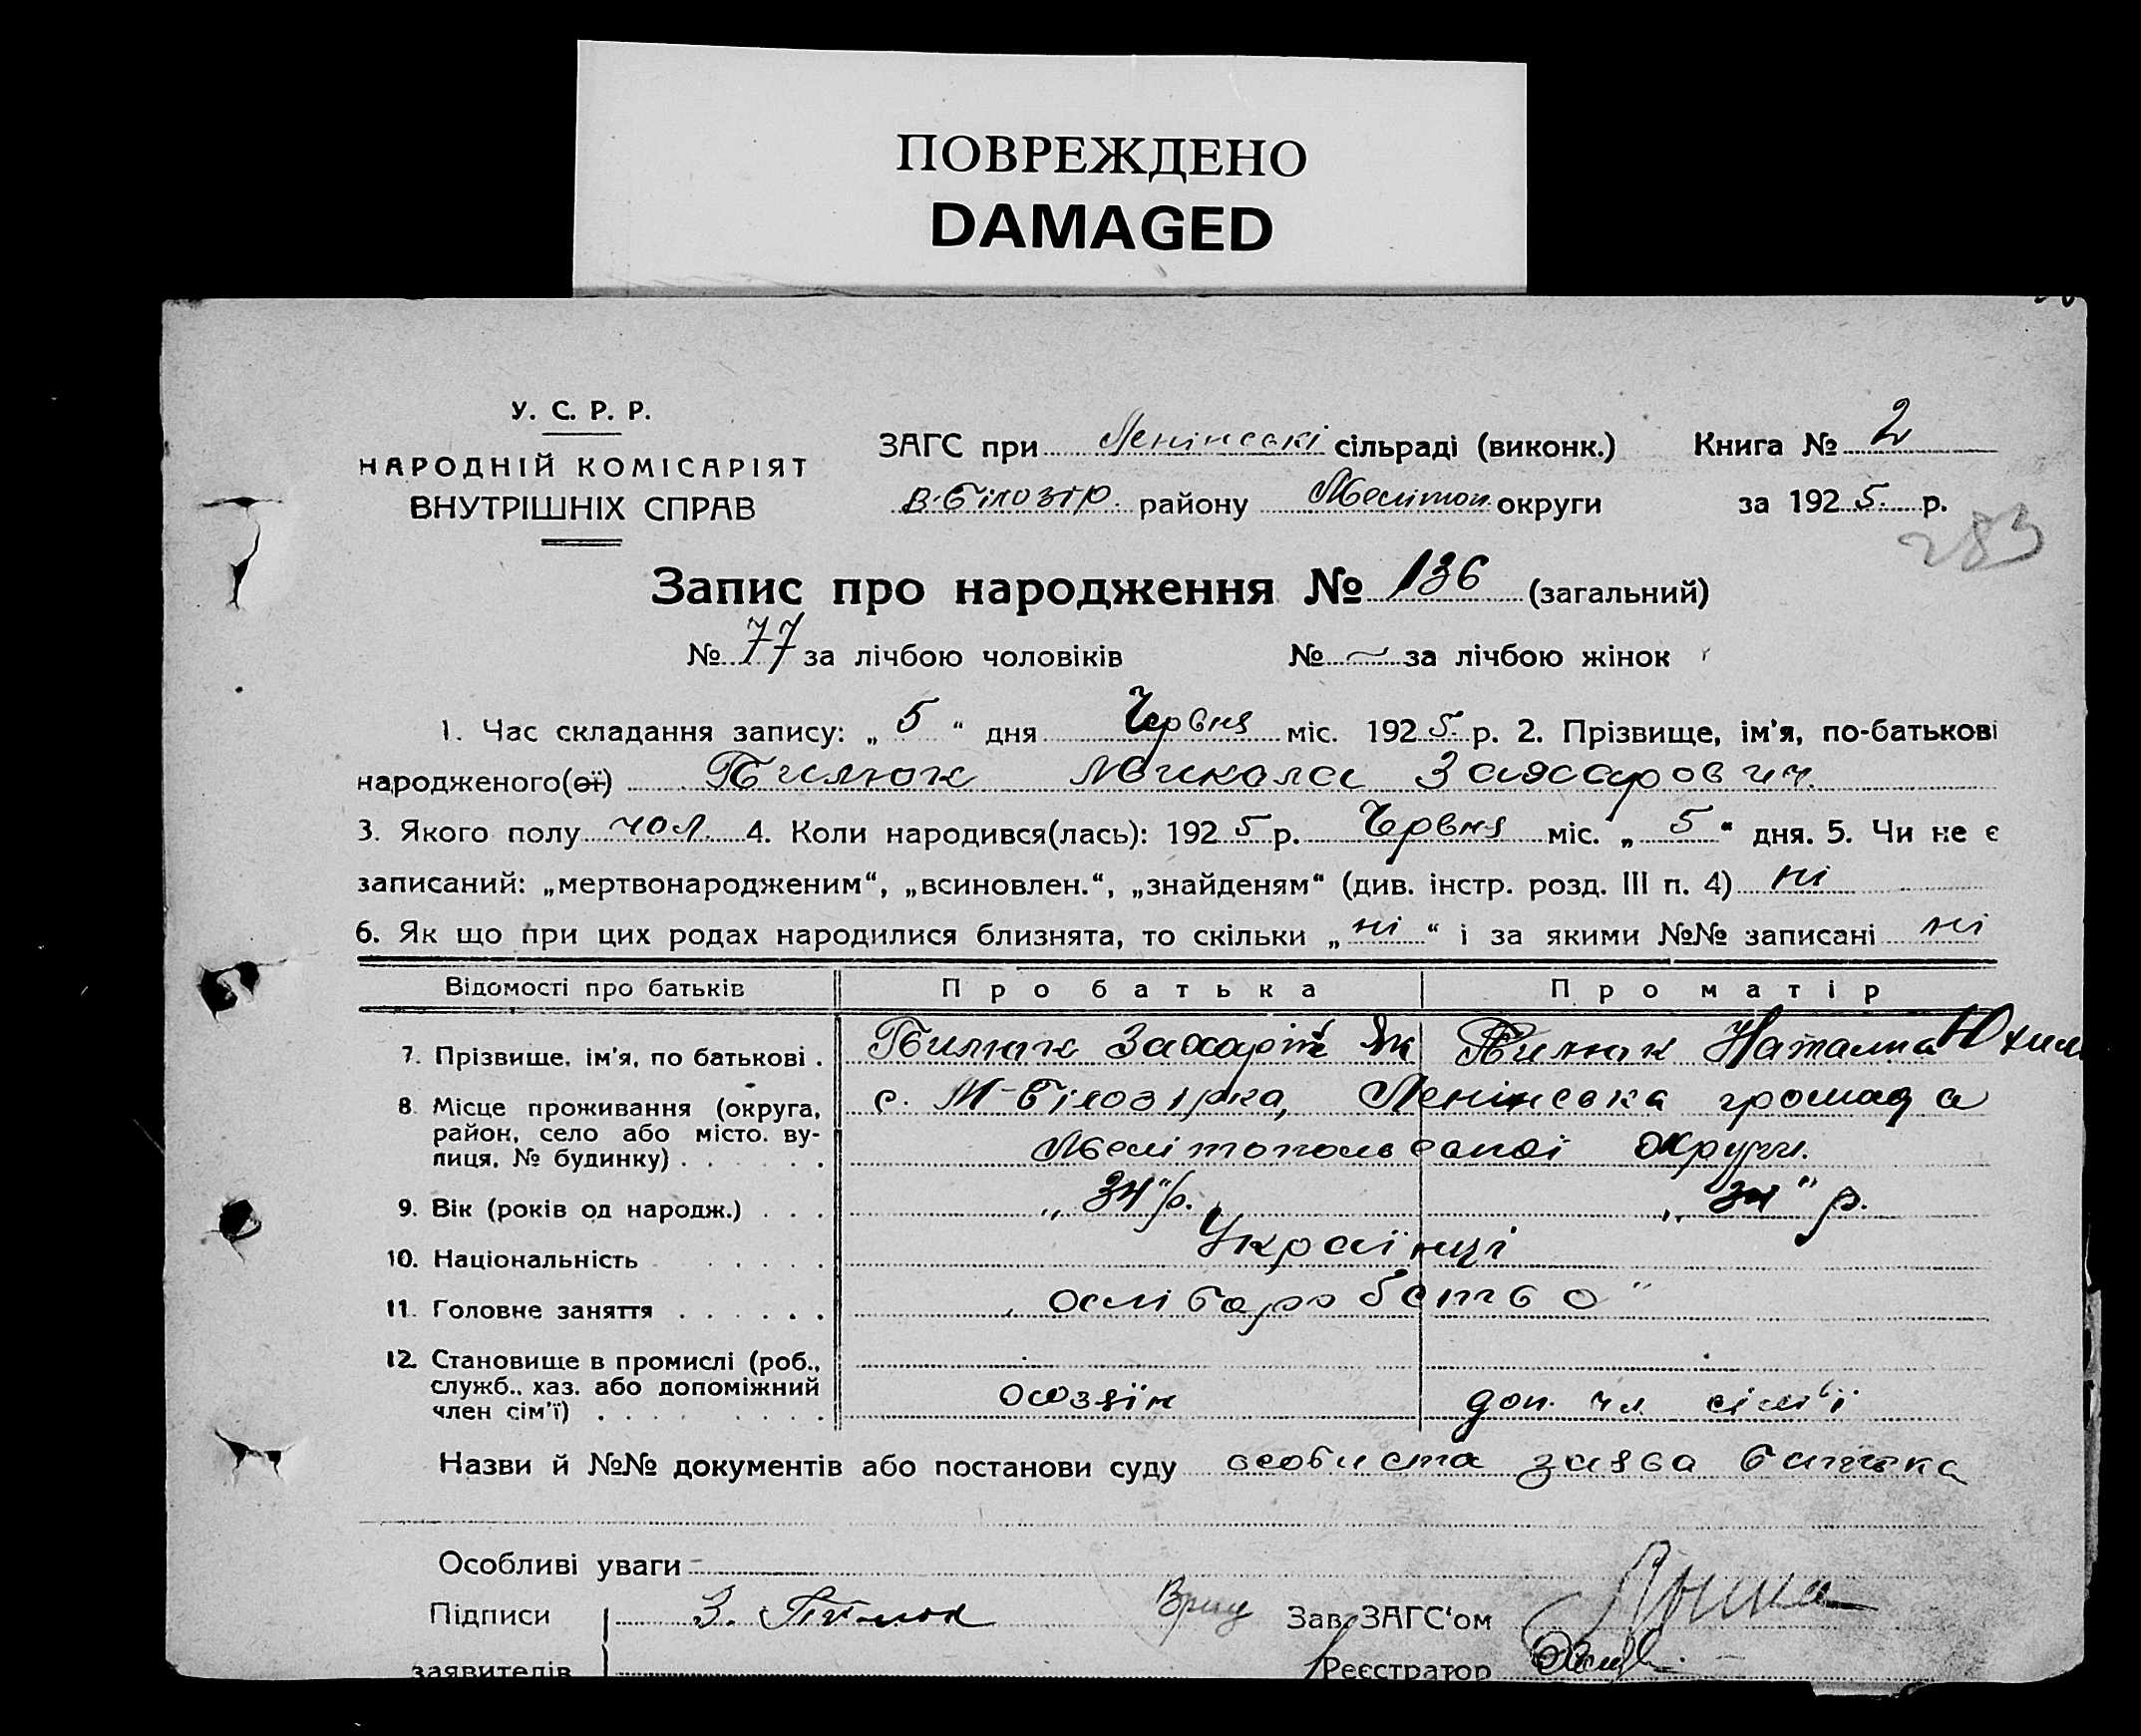 ПОВРЕЖДЕНО
DAMAGED
У. С. Р. Р.
НАРОДНІЙ КОМІСАРІЯТ
ВНУТРІШНІХ СПРАВ
ЗАГС при Ленінські сільраді (виконк.) Книга № 2
В-Білозір. району Мелітоп. округи за 1925 р.
283
Запис про народження № 136 (загальний)
№ 77 за лічбою чоловіків № — за лічбою жінок
1. Час складання запису: „ 5 “ дня Червня міс. 1925 р. 2. Прізвище, ім'я, по-батькові
народженого(ої) Билюк Микола Захарович
3. Якого полу чол. 4. Коли народився(лась): 1925 р. Червня міс. „ 5 “ дня. 5. Чи не є
записаний: „мертвонародженим“, „всиновлен.“, „знайденям“ (див. інстр. розд. III п. 4) ні
6. Як що при цих родах народилися близнята, то скільки „ ні “ і за якими №№ записані ні
Відомості про батьків Про батька Про матір
7. Прізвище, ім'я, по батькові . Билюк Захарій Як Билюк Наталка Юхим
8. Місце проживання (округа, с. М-Білозірка, Ленінська громада
район, село або місто, ву-
лиця, № будинку) . . . . . . Мелітопольської округи.
9. Вік (років од народж.) . . . „ 34 “ р. „ 34 “ р.
10. Національність . . . . . . Українці
11. Головне заняття . . . . . . хліборобство "
12. Становище в промислі (роб.,
служб., хаз. або допоміжний
член сім'ї) . . . . . . . . хозяїн доп. чл сім'ї
Назви й №№ документів або постанови суду особиста заява батька
Особливі уваги –
Підписи З. Білюк Зав. ЗАГС'ом
заявителів Реєстратор